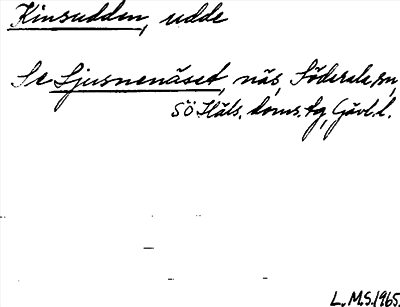 Kinsudden, udde
Se Ljusnenäset, näs, Söderala sn,
SÖ Häls. doms. tg, Gävl. l.
L.M.S. 1965.